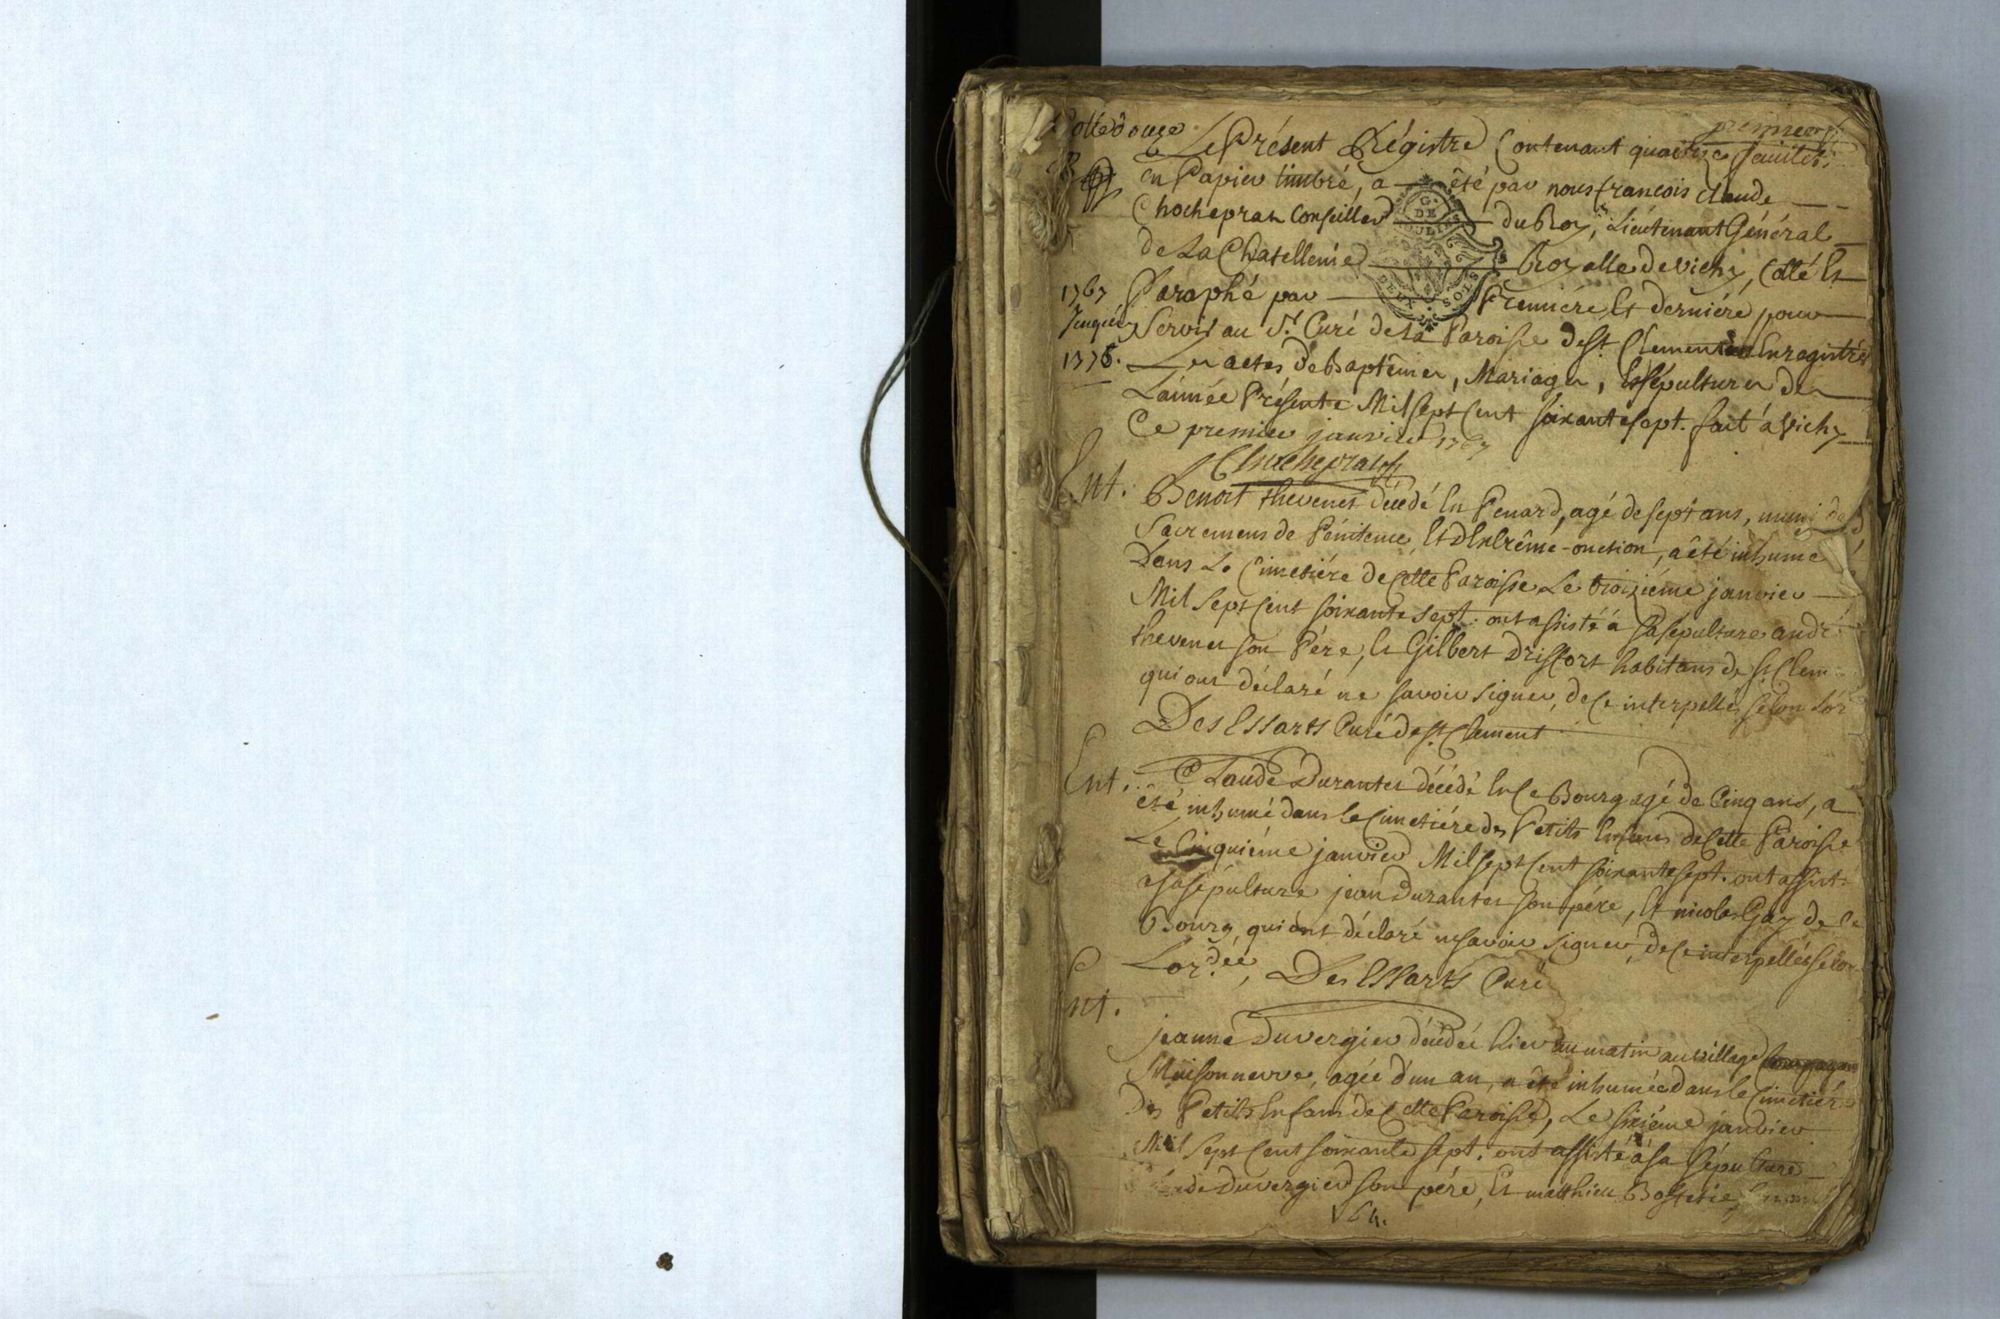 Cotte douze
premier
Le Présent Régistre Contenant quatorze feuilets
en Papier timbré, a été par nous francois claude
Chocheprat Conseiller du Roy, Lieutenant Général
de La Chatellenie Royalle de vichy, Cotté Et
1767
Paraphé par Premiére Et derniére pour
Jusquen
Servir au Sr. Curé de La Paroisse de St. Clement Enregistrer
1776.
Les actes de Baptêmes, Mariages, Et Sépultures de
L'année Présente Mil sept Cent soixante sept. fait á vichy
Ce premier janvier 1767
Chocheprat
G. DE MOULINS
DEUX SOLS
Ent.
Benoit thevenet décédé En Penard, agé de sept ans, muni des
Sacremens de Pénitence Et D'Extrême-onction, a été inhumé
Dans Le Cimetiére de Cette Paroisse Le troiziéme janvier
Mil sept Cent soixante sept: ont assisté á sa sépulture andré
thevenet son Pére, Et Gilbert Driffort habitans de St. Clem
qui ont déclaré ne savoir signer, de Ce interpellés selon L'or
Des Essarts Curé de St. Clement
Ent.
Claude Durantet décédé En Ce Bourg agé de Cinq ans, a
été inhumé dans le Cimetiére des Petits Enfans de Cette Paroisse
Le Cinquiéme janvier Mil sept Cent soixante sept. ont assisté
a sa sépulture jean Durantet son pére, Et nicolas Gay de Ce
Bourg, qui ont déclaré ne savoir signer, de Ce interpellés selon
L'or.dce, Des Essarts Curé
Ent.
jeanne Duvergier décédée hier au matin au village
Maisonneuve, agée d'un an, a été inhumée dans le Cimetiére
Des Petits Enfans de Cette Paroisse, Le sixiéme janvier
Mil sept Cent soixante sept. ont assisté á sa sépulture
Duvergier son pére, Et matthieu